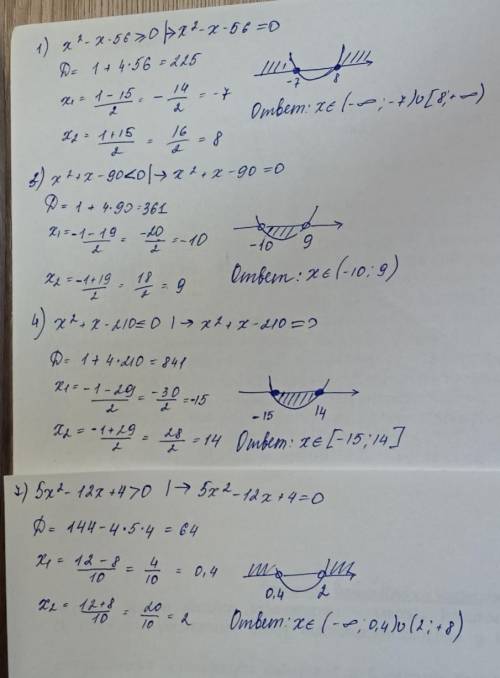 1) x² - x - 56 ⩾ 0 |→ x² - x - 56 = 0
D = 1 + 4·56 = 225
x₁ = (1-15)/2 = -14/2 = -7
-7 8
Ответ: x ∈ (-∞; -7) ∪ [8; +∞)
x₂ = (1+15)/2 = 16/2 = 8
3) x² + x - 90 < 0 |→ x² + x - 90 = 0
D = 1 + 4·90 = 361
x₁ = (-1-19)/2 = -20/2 = -10
-10 9
x₂ = (-1+19)/2 = 18/2 = 9
Ответ: x ∈ (-10; 9)
4) x² + x - 210 ≤ 0 |→ x² + x - 210 = 0
D = 1 + 4·210 = 841
x₁ = (-1-29)/2 = -30/2 = -15
-15 14
x₂ = (-1+29)/2 = 28/2 = 14
Ответ: x ∈ [-15; 14]
7) 5x² - 12x + 4 > 0 |→ 5x² - 12x + 4 = 0
D = 144 - 4·5·4 = 64
x₁ = (12-8)/10 = 4/10 = 0,4
0,4 2
x₂ = (12+8)/10 = 20/10 = 2
Ответ: x ∈ (-∞; 0,4) ∪ (2; +8)